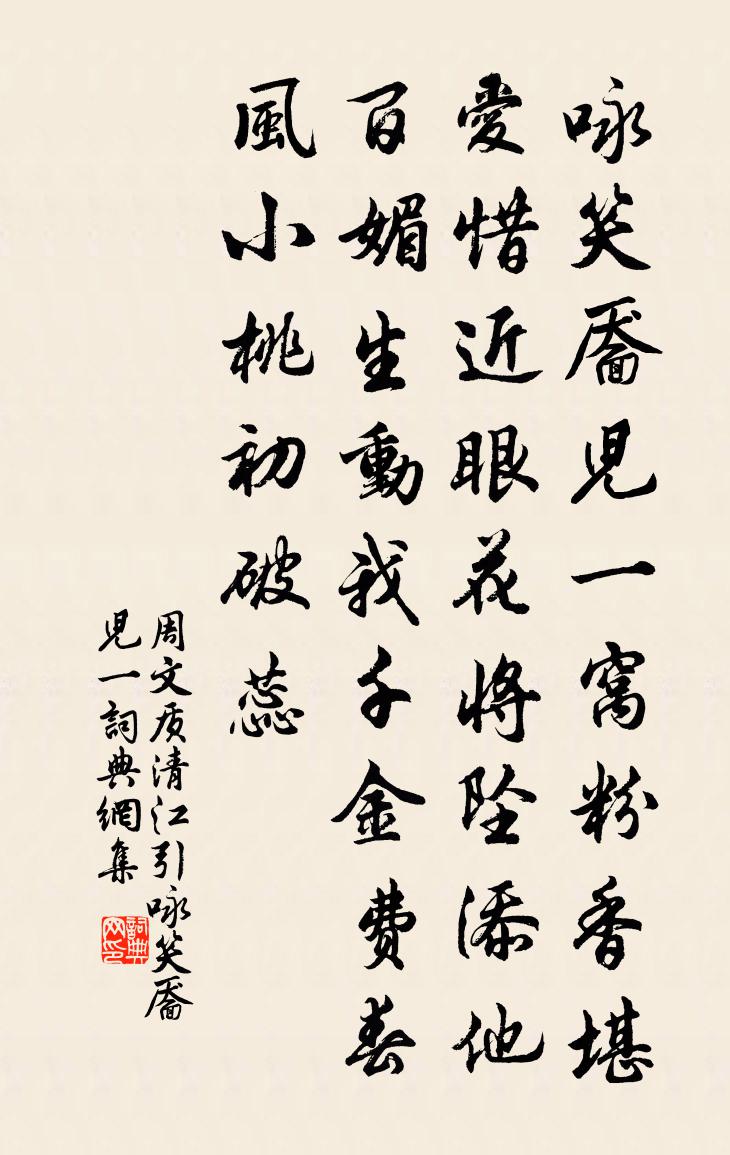 咏笑靥児一窝粉香堪
愛惜近眼花将坠添他
百媚生動我千金費春
風小桃初破蕊
周文质清江引咏笑靥
児一詞典網集
詞典
网印